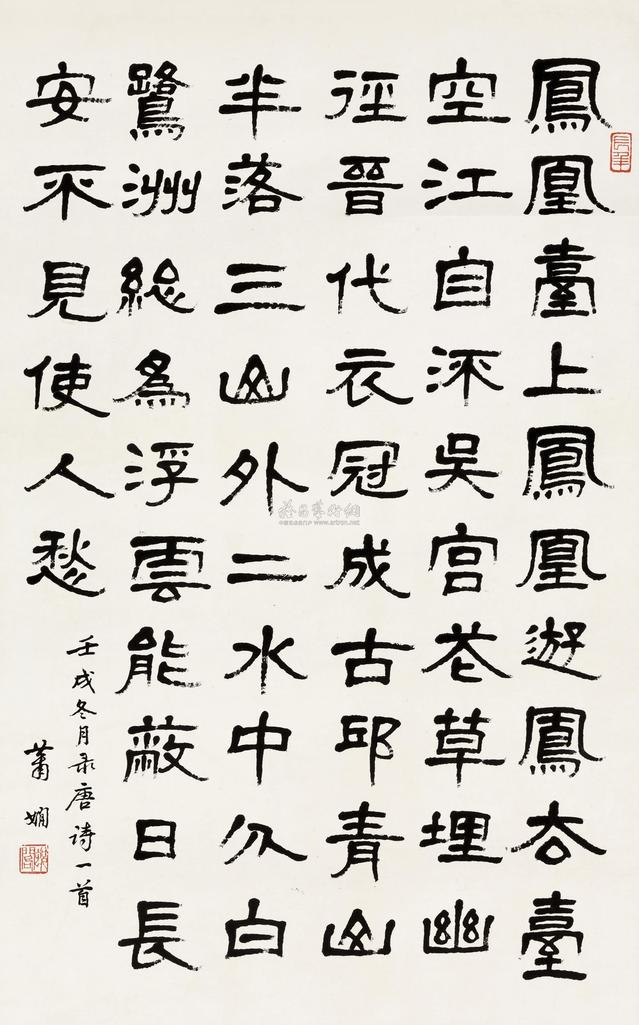 鳳凰臺上鳳凰遊鳳去臺
空江自流吳宮花草埋幽
徑晉代衣冠成古邱青山
半落三山外二水中分白
鷺洲總為浮雲能蔽日長
安不見使人愁
壬戌冬月录唐诗一首
蕭嫻
www.artron.net